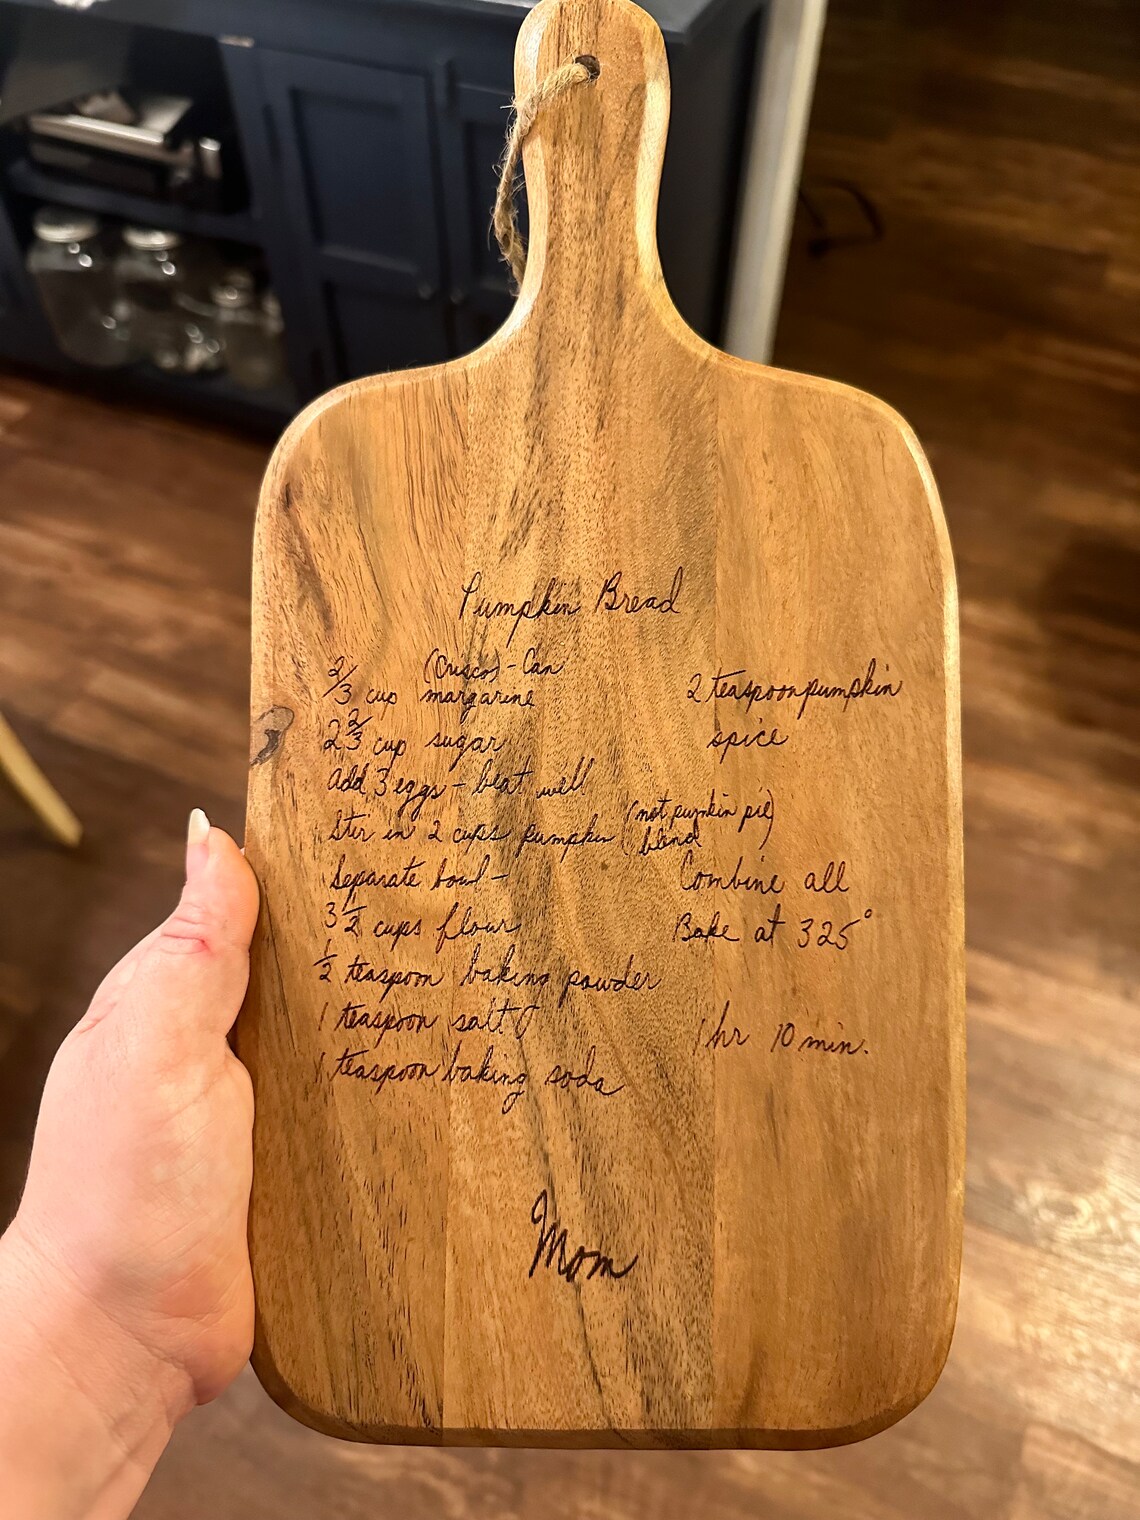 Pumpkin Bread
(Crisco) - Can
2/3 cup margarine
2 2/3 cup sugar
add 3 eggs - beat well
Stir in 2 cups pumpkin (not pumkin pie)
(blend
Separate bowl -
3 1/2 cups flour
1/2 teaspoon baking powder
1 teaspoon salt
1 teaspoon baking soda
2 teaspoon pumpkin
spice
Combine all
Bake at 325°
1 hr 10 min.
Mom